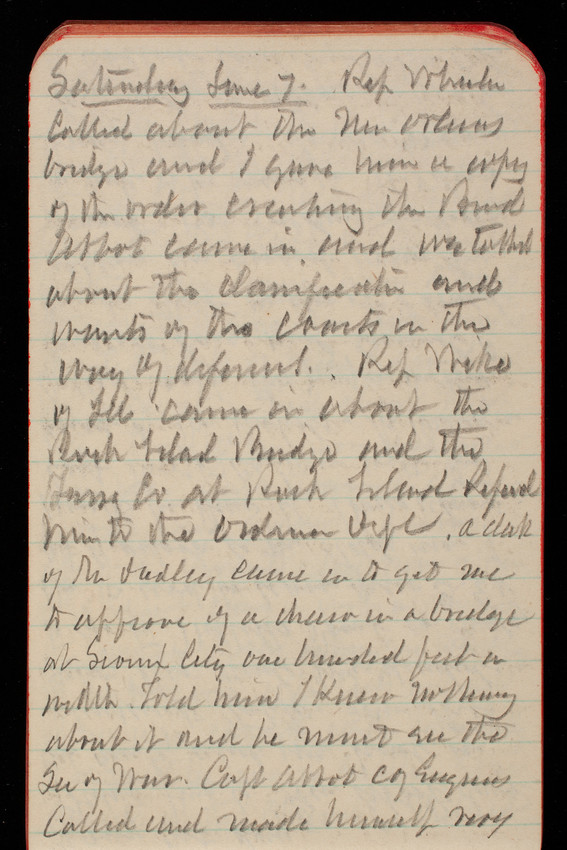 Saturday June 7. Rep Wheeler
Called about the New Orleans
bridge and I gave him a copy
of the order creating the Board
Abbot came in and we talked
about the classification and
wants of the coasts in the
way of defences. Rep Wike
of Ill came in about the
Rock Island Bridge and the
Co at Rock Island Refered
him to the Ordnance Dept. a clerk
of Mr Dudley came in to get me
to approve of a draw in a bridge
at Sioux City one hundred feet in
width. Told him I knew nothing
about it and he must see the
Sec of War. Capt Abbot C of Engineers
Called and made himself very